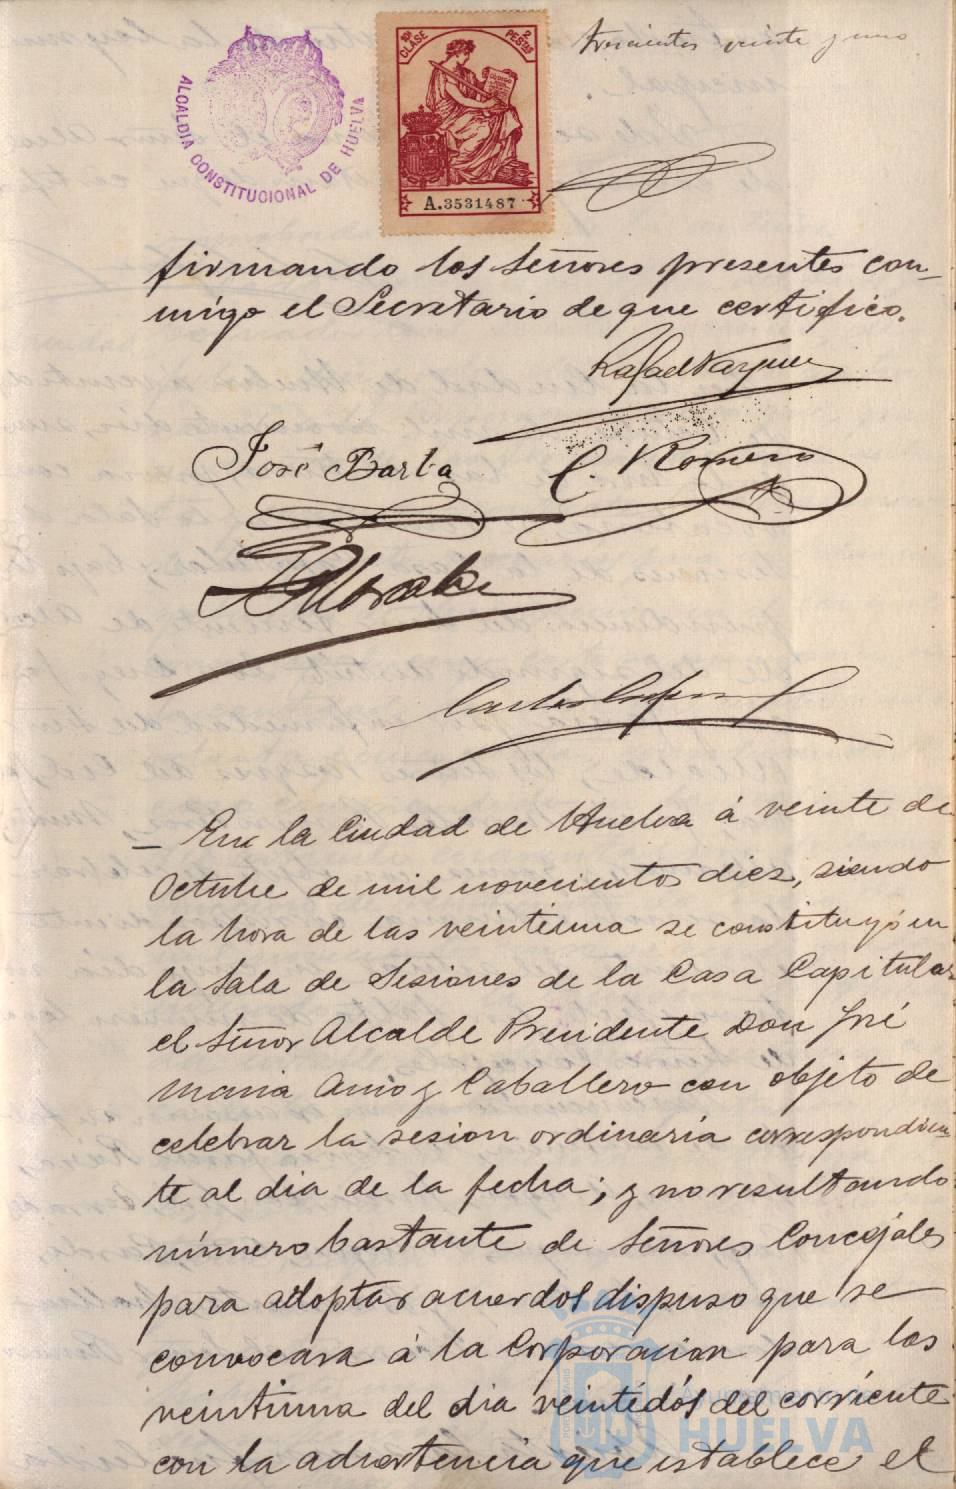 trescientos veinte y uno
ALCALDIA CONSTITUCIONAL DE HUELVA
10ª CLASE
2 PESTAS
CODIGO
A.3531487
firmando los Señores presentes con-
migo el Secretario de que certifico.
Rafael Vazquez
José Barba
C. Romero
Morales
- En la Ciudad de Huelva á veinte de
Octubre de mil novecientos diez, siendo
la hora de las veintiuna se constituyó en
la Sala de Sesiones de la Casa Capitular
el Señor Alcalde Presidente Don José
Maria Amo y Caballero con objeto de
celebrar la sesion ordinaria correspondien-
te al dia de la fecha; y no resultando
número bastante de Señores Concejales
para adoptar acuerdos dispuso que se
convocara á la Corporacion para las
veintiuna del dia veintidós del corriente
con la advertencia que establece el
Ayuntamiento de
HUELVA